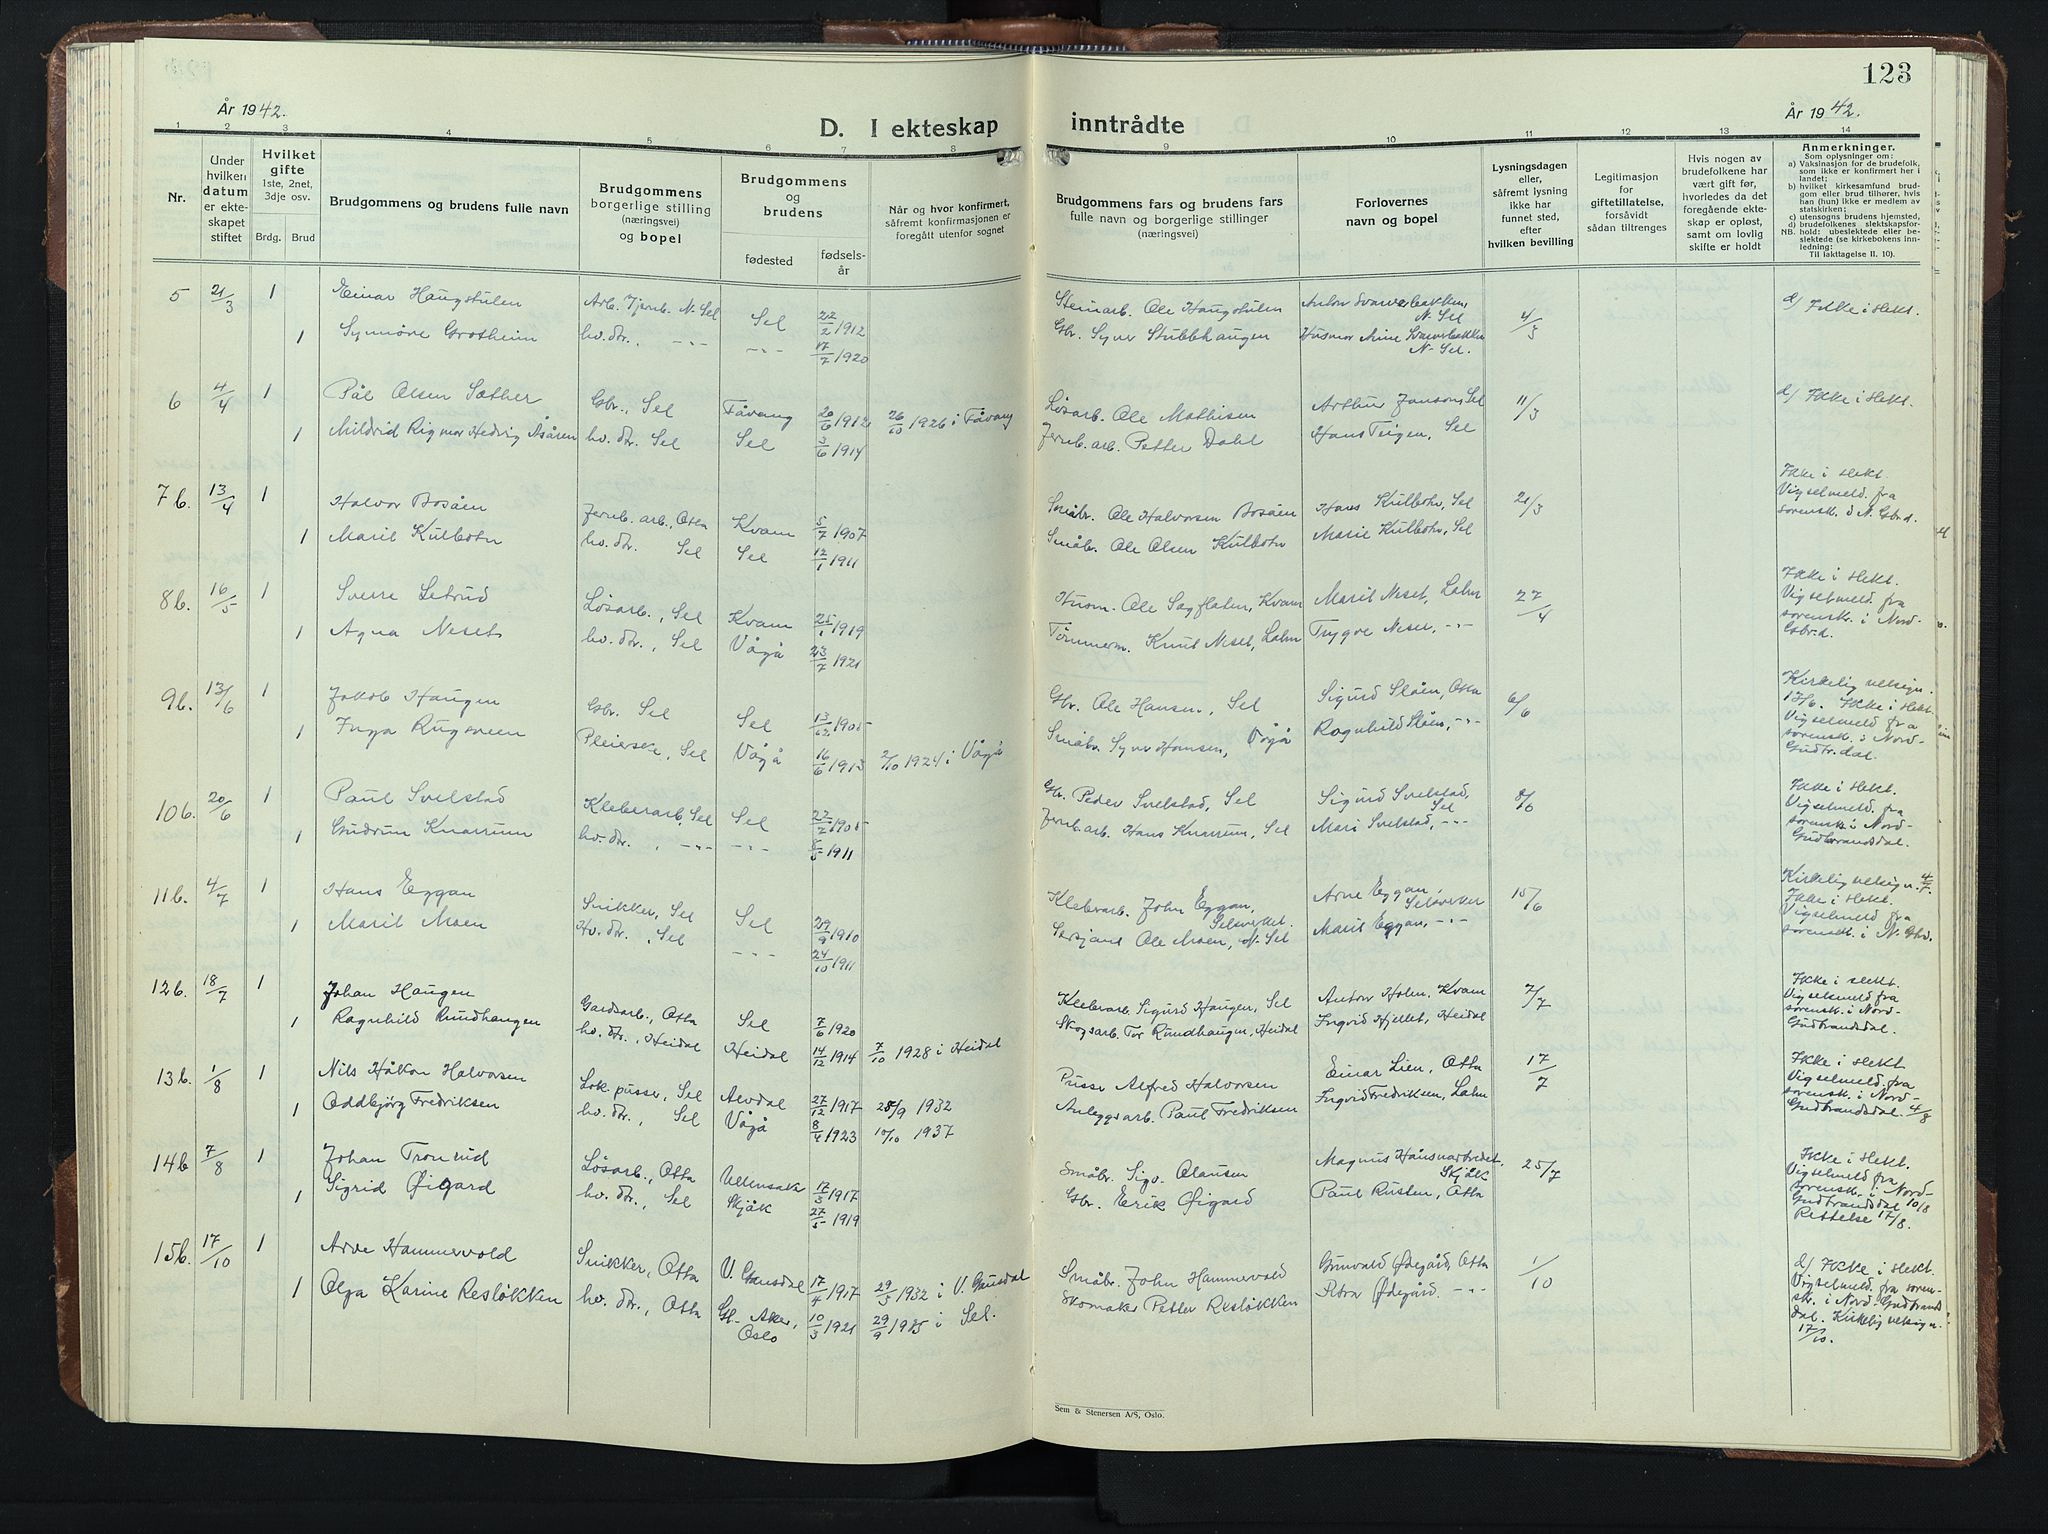 123
År 1942.
År 1942.
D. I ekteskap inntrådte
1 2 3 4 5 6 7 8 9 10 11 12 13 14
Nr.
Under hvilken datum er ekteskapet stiftet
Hvilket gifte 1ste, 2net, 3dje osv.
Brdg. Brud
Brudgommens og brudens fulle navn
Brudgommens borgerlige stilling (næringsvei) og bopel
Brudgommens og brudens
fødested
fødselsår
Når og hvor konfirmert, såfremt konfirmasjonen er foregått utenfor sognet
Brudgommens fars og brudens fars fulle navn og borgerlige stillinger (næringsvei)
Forlovernes navn og bopel
Lysningsdagen eller, såfremt lysning ikke har funnet sted, efter hvilken bevilling
Legitimasjon for giftetillatelse, forsåvidt sådan tiltrenges
Hvis nogen av brudefolkene har vært gift før, hvorledes da det foregående ekteskap er opløst, samt om lovlig skifte er holdt
Anmerkninger.
Som oplysninger om:
a) Vaksinasjon for de brudefolk, som ikke er konfirmert her i landet;
b) hvilket kirkesamfund brudgom eller brud tilhører, hvis han (hun) ikke er medlem av statskirken;
c) utensogns brudens hjemsted,
d) brudefolkenes slektskapsforhold: ubeslektede eller beslektede (se kirkebokens innledning:
NB.
Til iakttagelse II. 10).
5 21/3 1 Einar Haugstulen Arb. Jernb. N. Sel Sel 22/2 1912 Steinarb. Ole Haugstulen Anton Svarverbakken, N. Sel 4/3 d) Ikke i slekt.
1 Synnöve Grotheim hv. dtr., -"- -"- 17/7 1920 Gbr. Syver Stubbhaugen Husmor Mine Svarverbakken N. Sel.
6 4/4 1 Pål Olsen Sæther Gbr., Sel Fåvang 20/6 1912 26/10 1926 i Fåvang Løsarb. Ole Mathisen Arthur Janson, Sel 11/3 d) Ikke i slekt.
1 Mildrid Rigmor Hedvig Åsåren hv. dtr. Sel Sel 3/6 1914 Jernb. arb. Petter Dahl Hans Teigen, Sel
7b. 13/4 1 Halvor Bosåen Jernb. arb., Otta Kvam 5/7 1907 Småbr. Ole Halvorsen Bosåen Hans Kulbotn, Sel 21/3 Ikke i slekt. Vigselmeld. fra sorensk. i N. Gbr.d.
1 Marit Kulbotn hv. dtr. Sel Sel 12/1 1911 Småbr. Ole Olsen Kulbotn Marie Kulbotn, Sel
8b. 16/5 1 Sverre Letrud Løsarb., Sel Kvam 25/1 1919 Husm. Ole Sagflaten, Kvam Marit Neset, Lalm 27/4 Ikke i slekt. Vigselmeld. fra sorensk. i Nord-Gbr.d.
1 Agna Neset hv. dtr., Sel Vågå 23/7 1921 Tømmerm. Knut Neset, Lalm Trygve Neset, -"-
9b. 13/6 1 Jakob Haugen Gbr. Sel Sel 13/12 1905 Gbr. Ole Hansen, Sel Sigurd Slåen, Otta 6/6 Kirkelig velsign. 13/6. Ikke i slekt. Vigselmeld fra sorensk. i Nord-Gudbr.dal.
1 Inga Rugsveen Pleierske, Sel Vågå 16/6 1913 2/10 1924 i Vågå Småbr. Syver Hansen, Vågå Ragnhild Slåen, -"-
10b. 20/6 1 Paul Svelstad Kleberarb. Sel Sel 22/2 1905 Gbr. Peder Svelstad, Sel Sigurd Svelstad, Sel 8/6 Ikke i slekt. Vigselmeld. fra sorensk. i Nord-Gudbrandsdal.
1 Gudrun Knarrum hv. dtr., -"- -"- 8/5 1911 Jernb. arb. Hans Knarrum, Sel Mari Svelstad, -"-
11b. 4/7 1 Hans Eggan Snikker, Sel Sel 29/9 1910 Kleberarb. John Eggan, Selsverket. Arne Eggan, Selsverket 15/6 Kirkelig velsign. 4/7. Ikke i slekt. Vigselmeld fra sorensk. i N. Gbd.
1 Marit Moen Hv. dtr., Sel -"- 24/10 1911 Serjant Ole Moen, Sel Marit Eggan, -"-
12b. 18/7 1 Johan Haugen Gardsarb., Otta Sel 7/6 1920 Kleberarb. Sigurd Haugen, Sel Anton Holm, Kvam 7/7 Ikke i slekt. Vigselmeld fra sorensk. i Nord-Gudbrandsdal.
1 Ragnhild Rundhaugen hv. dtr., Heidal Heidal 14/12 1914 7/10 1928 i Heidal Skogsarb. Tor Rundhaugen, Heidal Ingvid Hjellet, Heidal
13b. 1/8 1 Nils Håkon Halvorsen Lok. pusser, Sel Alvdal 27/12 1917 25/9 1932 Pusser Alfred Halvorsen Einar Lien, Otta 17/7 Ikke i slekt Vigselmeld. fra sorensk. i Nord-Gudbrandsdal. 4/8
1 Oddbjörg Fredriksen hv. dtr., Sel Vågå 8/4 1923 10/10 1937 Anleggsarb. Paul Fredriksen Ingvid Fredriksen, Lalm
14b 7/8 1 Johan Tronrud Løsarb., Otta Ullensaker 17/3 1917 Småbr. Sigv. Olausen Magnus Håmsnarbredet, Skjåk 25/7 Ikke i slekt. Vigselmeld fra sorensk. i Nord-Gudbrandsdal 10/8 Rettelse 17/8.
1 Sigrid Øigard hv. dtr., Sel Skjåk 27/5 1919 Gbr. Erik Øigard Paul Rusten, Otta
15b 17/10 1 Arve Hammervold Snikker, Otta V. Gausdal 17/4 1917 29/5 1932 i V. Gausdal Småbr. John Hammervold Grinvald Ødegård, Otta 1/10 d) Ikke i slekt. Vigselmeld. fra sorenskr. i Nord-Gudbrandsdal. Kirkelig velsign. 17/10.
1 Olga Karine Resløkken hv. dtr., Otta Gl. Aker, Oslo 10/3 1921 29/9 1935 i Sel. Skomaker Petter Resløkken Petra Ødegård. -"-
Sem & Stenersen A/S, Oslo.